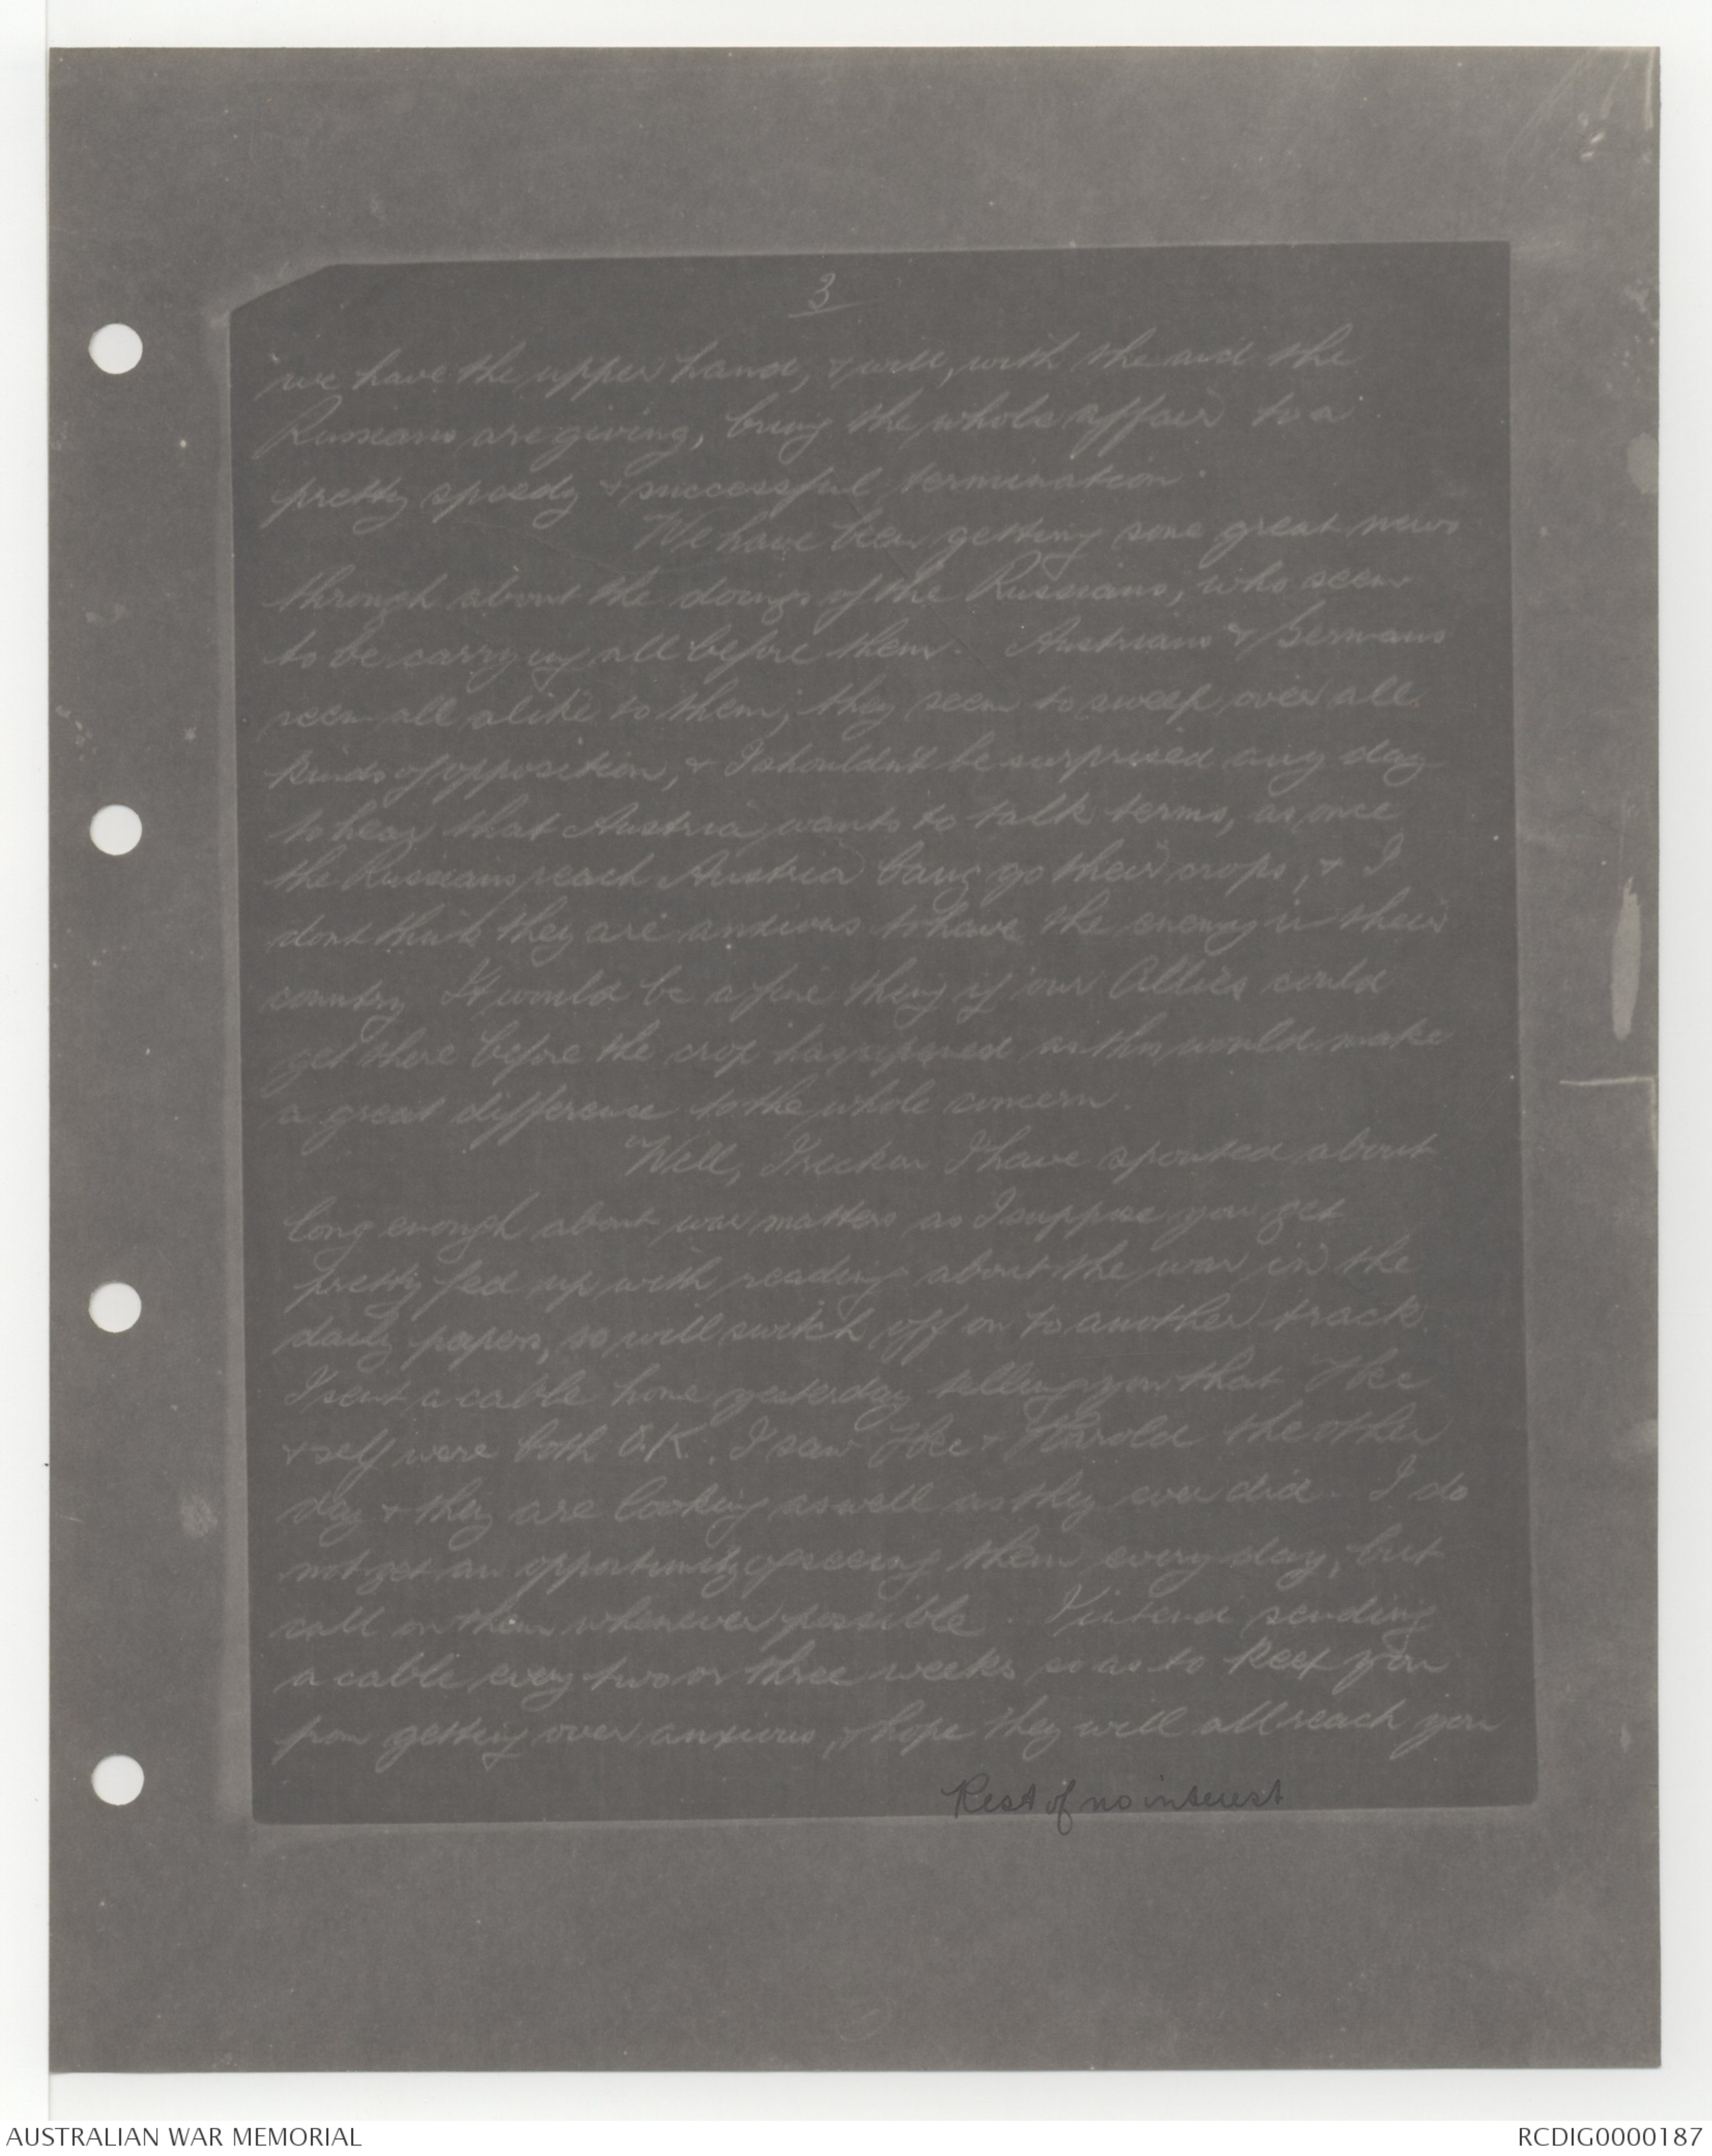 3
we have the upper hand, & will, with the aid the
Russians are giving, bring the whole affair to a
pretty speedy & successful termination.
We have been getting some great news
through about the doings of the Russians, who seem
to be carrying all before them. Austrians & Germans
seem all alike to them, they seem to sweep over all
kinds of opposition, & I shouldn't be surprised any day
to hear that Austria wants to talk terms, as once
the Russians reach Austria bang go their crops, & I
dont think they are anxious to have the enemy in their
country. It would be a fine thing if our Allies could
get there before the crop has ripened as this would make
a great difference to the whole concern.
Well, I reckon I have spouted about
long enough about war matters as I suppose you get
pretty fed up with reading about the war in the
daily papers, so will switch off on to another track.
I sent a cable home yesterday telling you that
& self were both O.K. I saw & Harold the other
day & they are looking as well as they ever did. I do
not get an opportunity of seeing them every day, but
call on them whenever possible. I intend sending
a cable every two or three weeks so as to keep you
from getting over anxious, & hope they will all reach you
Rest of no interest
AUSTRALIAN WAR MEMORIAL
RCDIG0000187